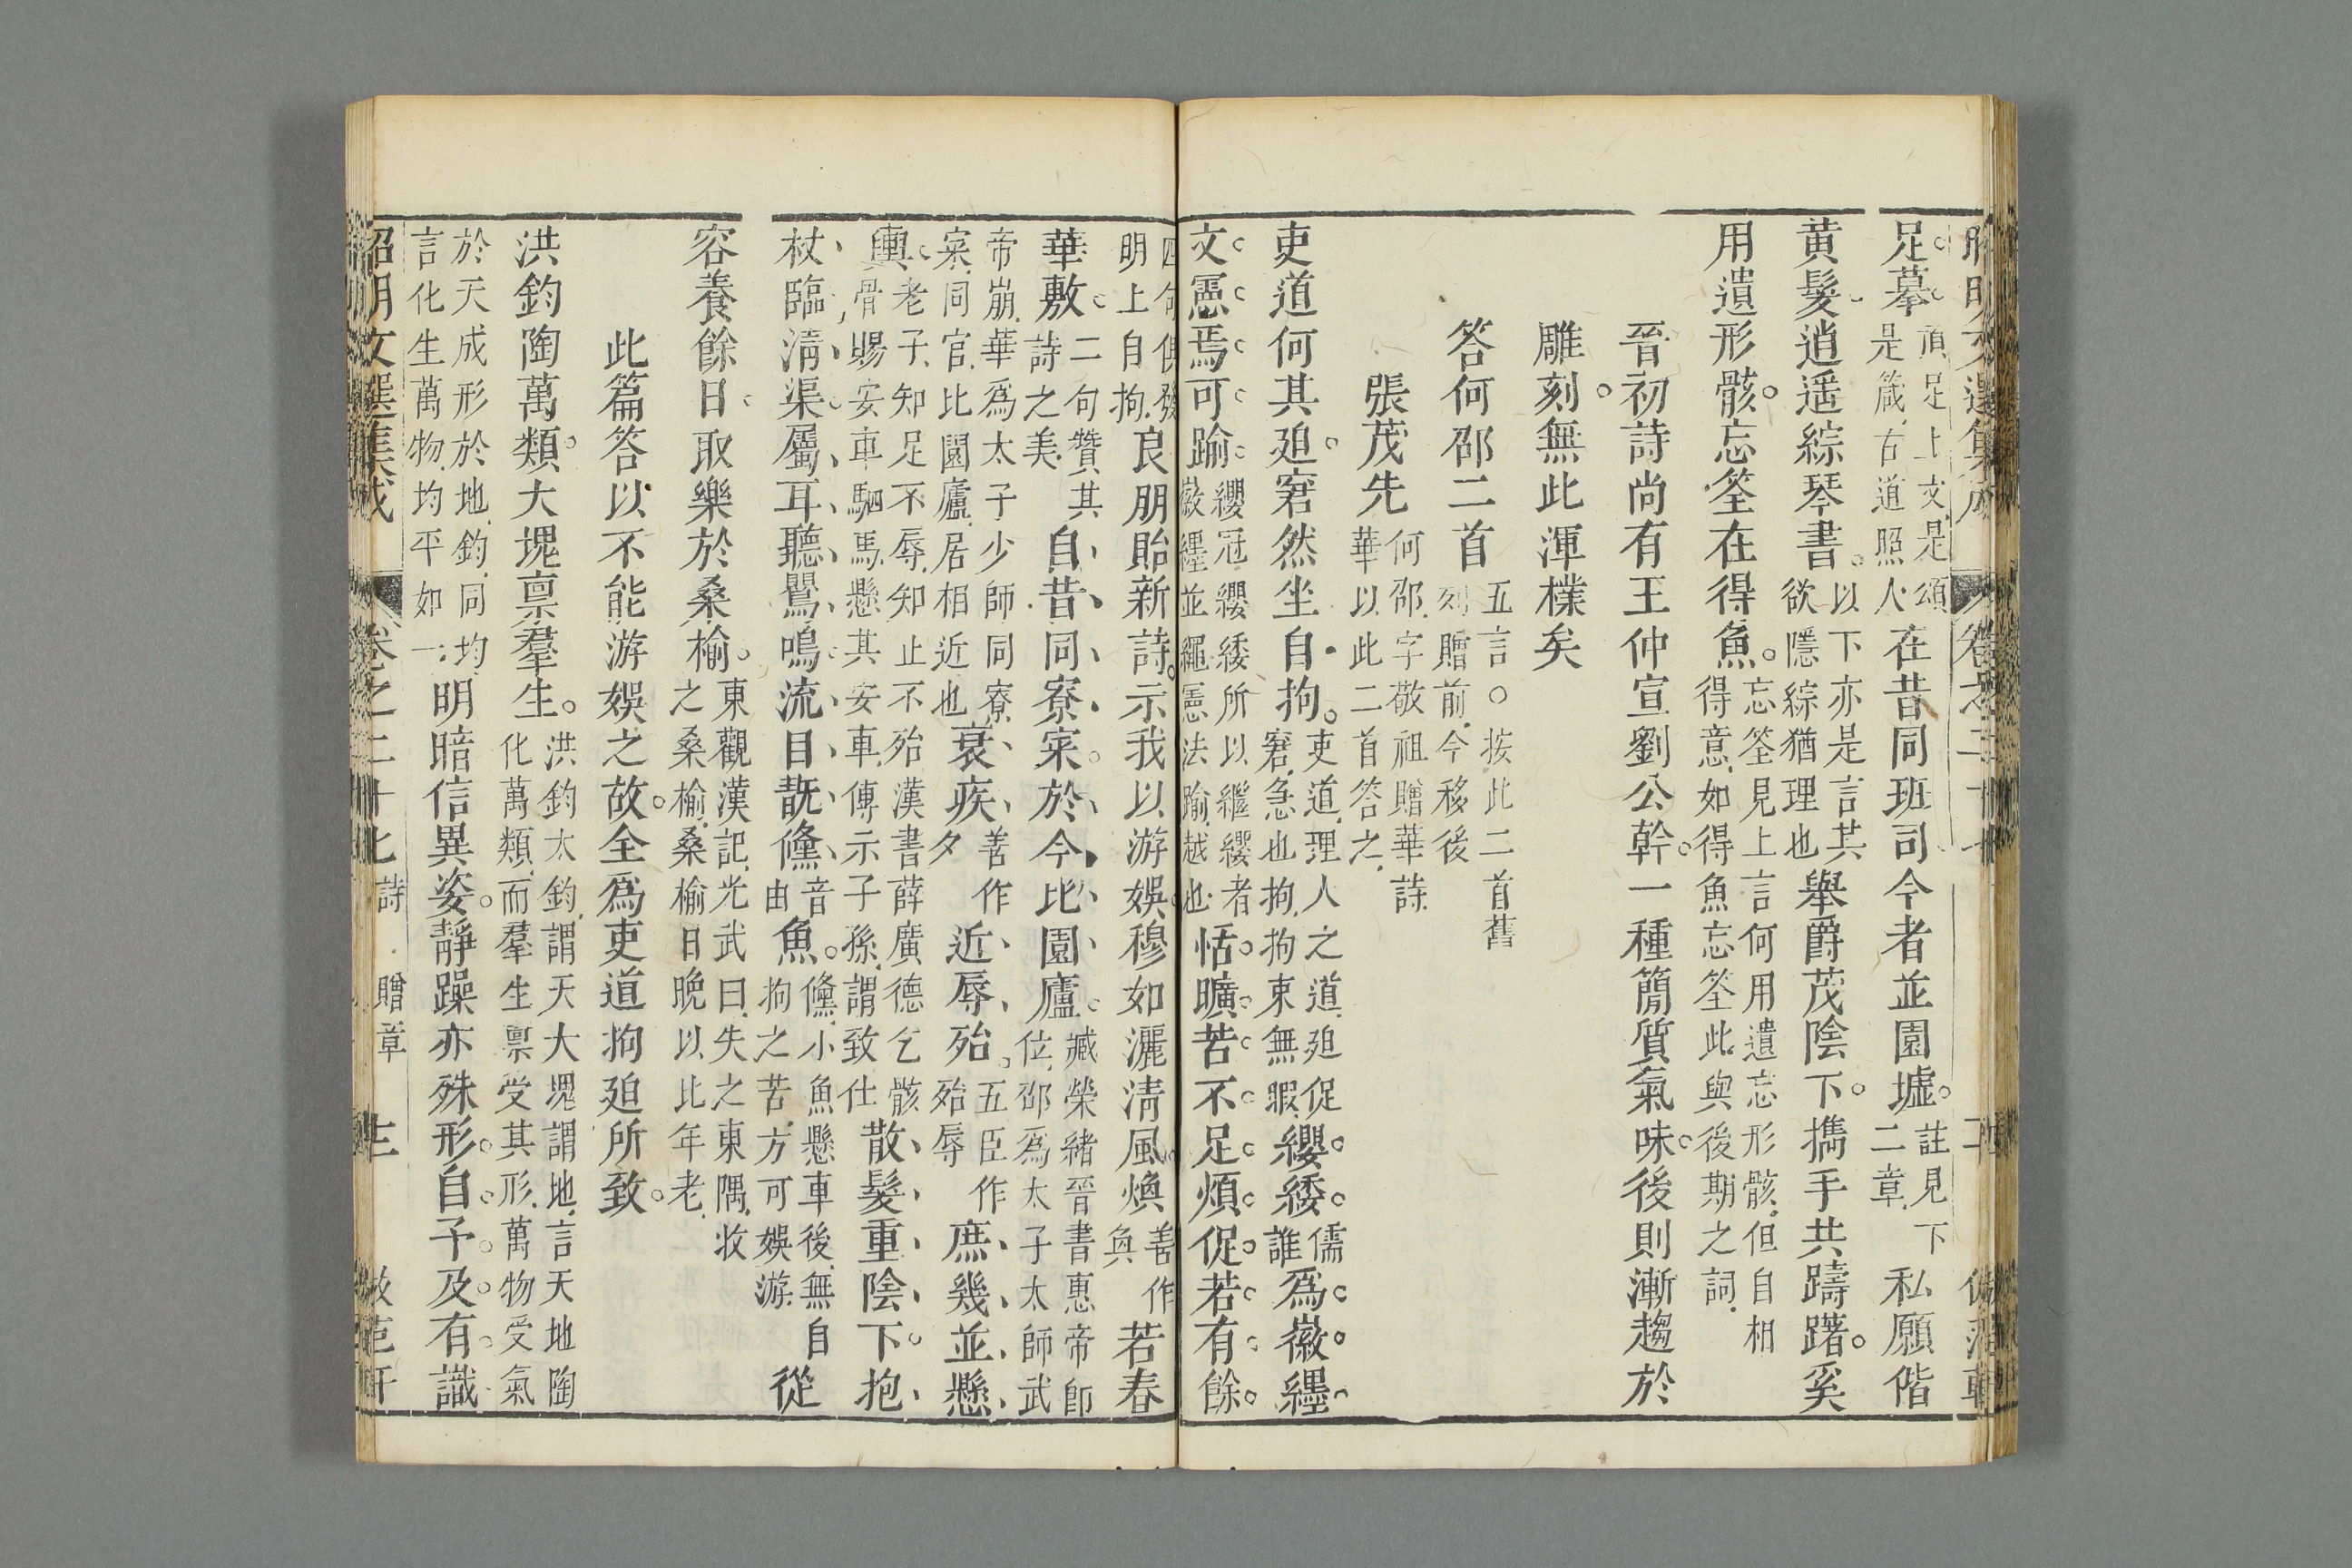 昭明文選集成 卷之二十七
足摹頂足上文是頌是箴古道照人在昔同班司今者並園墟註見下二章私願偕
黄髮逍遥綜琴書以下亦是言其欲隱綜猶理也舉爵茂陰下携手共躊躇奚
用遺形骸忘筌在得魚忘筌見上言何用遺忘形骸但自相得意如得魚忘筌此與後期之詞
晉初詩尚有王仲宣劉公幹一種簡質氣味後則漸趨於
雕刻無此渾樸矣
答何邵二首五言○按此二首舊列贈前今移後
張茂先何邵字敬祖贈華詩華以此二首答之
吏道何其廹窘然坐自拘吏道理人之道廹促窘急也拘拘束無暇纓緌儒誰爲徽纆
文憲焉可踰纓冠纓緌所以繼纓者徽纆並繩憲法踰越也恬曠苦不足煩促若有餘
四句俱發明上自拘良朋貽新詩示我以游娛穆如灑淸風煥善作奐若春
華敷二句贊其詩之美自昔同寮寀於今比園廬臧榮緒晉書惠帝卽位邵爲太子太師武
帝崩華爲太子少師同寮寀同官比園廬居相近也衰疾善作夕近辱殆五臣作殆辱庶幾並懸
輿老子知足不辱知止不殆漢書薛廣德乞骸骨賜安車駟馬懸其安車傳示子孫謂致仕散髮重陰下抱
杖臨淸渠屬耳聽鸎鳴流目翫鯈音由魚鯈小魚懸車後無自拘之苦方可娛游從
容養餘日取樂於桑榆東觀漢記光武曰失之東隅收之桑榆桑榆日晚以比年老
此篇答以不能游娛之故全爲吏道拘廹所致
洪鈞陶萬類大塊禀羣生洪鈞太鈞謂天大塊謂地言天地陶化萬類而羣生禀受其形萬物受氣
於天成形於地鈞同均言化生萬物均平如一明暗信異姿靜躁亦殊形自予及有識
昭明文選集成 卷之二十七 詩 贈章